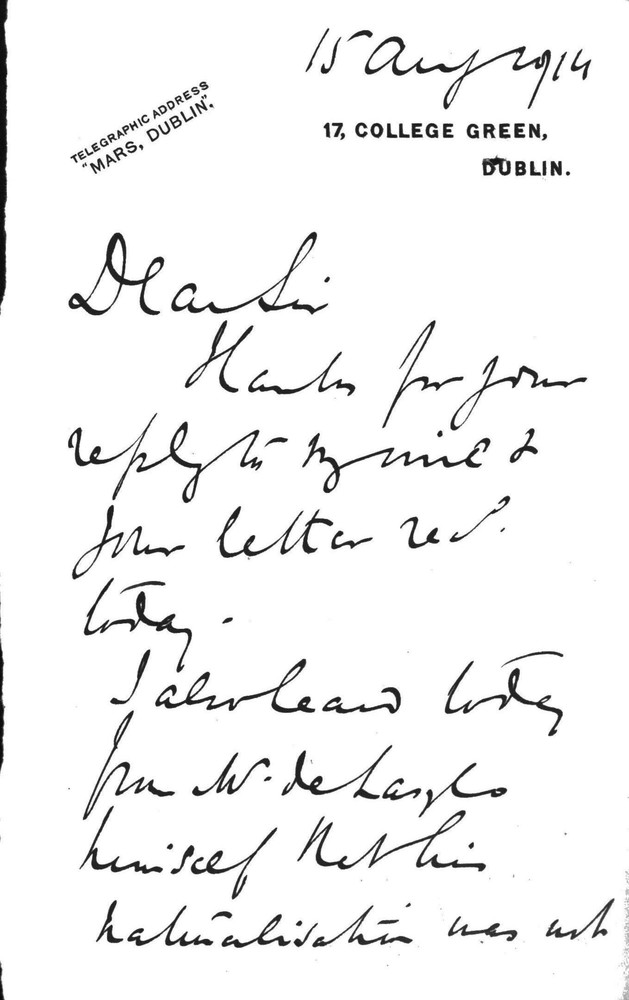 15 Aug 1914
TELEGRAPHIC ADDRESS
"MARS, DUBLIN".
17, COLLEGE GREEN,
DUBLIN.
Dear Sir
Thanks for your
reply to my wire &
your letter recd.
today.
I also heard today
from Mr. de Laszlo
himself that his
naturalisation was not